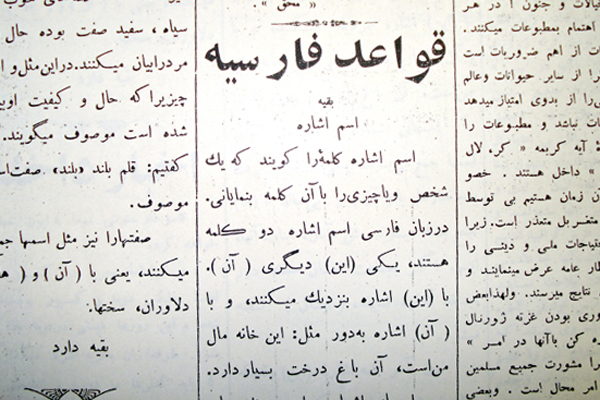 خیالات و جنون ا در هر
اهتمام بمطبوعات میکنند.
ت از اهم ضروریات است
را از سایر حیوانات وعالم
ی‌را از بدوی امتیاز میدهد
ات نباشد و مطبوعات را
ۀ آیه کریمه « کر، لال
» داخل هستند . خصو
آن زمان هستیم بی توسط
بل متعذر است. زیرا
حتیاجات ملی و دینی را
ظار عامه عرض مینمایند و
نتایج میرسند. ولهذابعض
وری بودن غزته ژورنال
ه کن باآنها در امر »
را مشورت جمیع مسلمین
امر محال است . وبعضی
« محقق » .
قواعد فارسیه
بقیه
اسم اشاره
اسم اشاره کلمۀرا کویند که یك
شخص ویاچیزی‌را با آن کلمه بنمایانی.
درزبان فارسی اسم اشاره دو کله
هستند، یکی (این) دیگری ( آن ).
با (این) اشاره بنزدیك میکنند، و با
( آن) اشاره به‌دور مثل: این خانه مال
من‌است، آن باغ درخت بسیار دارد.
سیاه، سفید صفت بوده حال
مردرابیان میکنند. دراین‌مثل‌و ا
چیزیراکه حال و کیفیت او
شده است موصوف میگویند.
کفتیم: قلم بلند «بلند» صفت‌اس
موصوف.
صفتهارا نیز مثل اسمها جم
میکنند، یعنی با ( آن ) و ( ه
دلاوران، سختها.
بقیه دارد